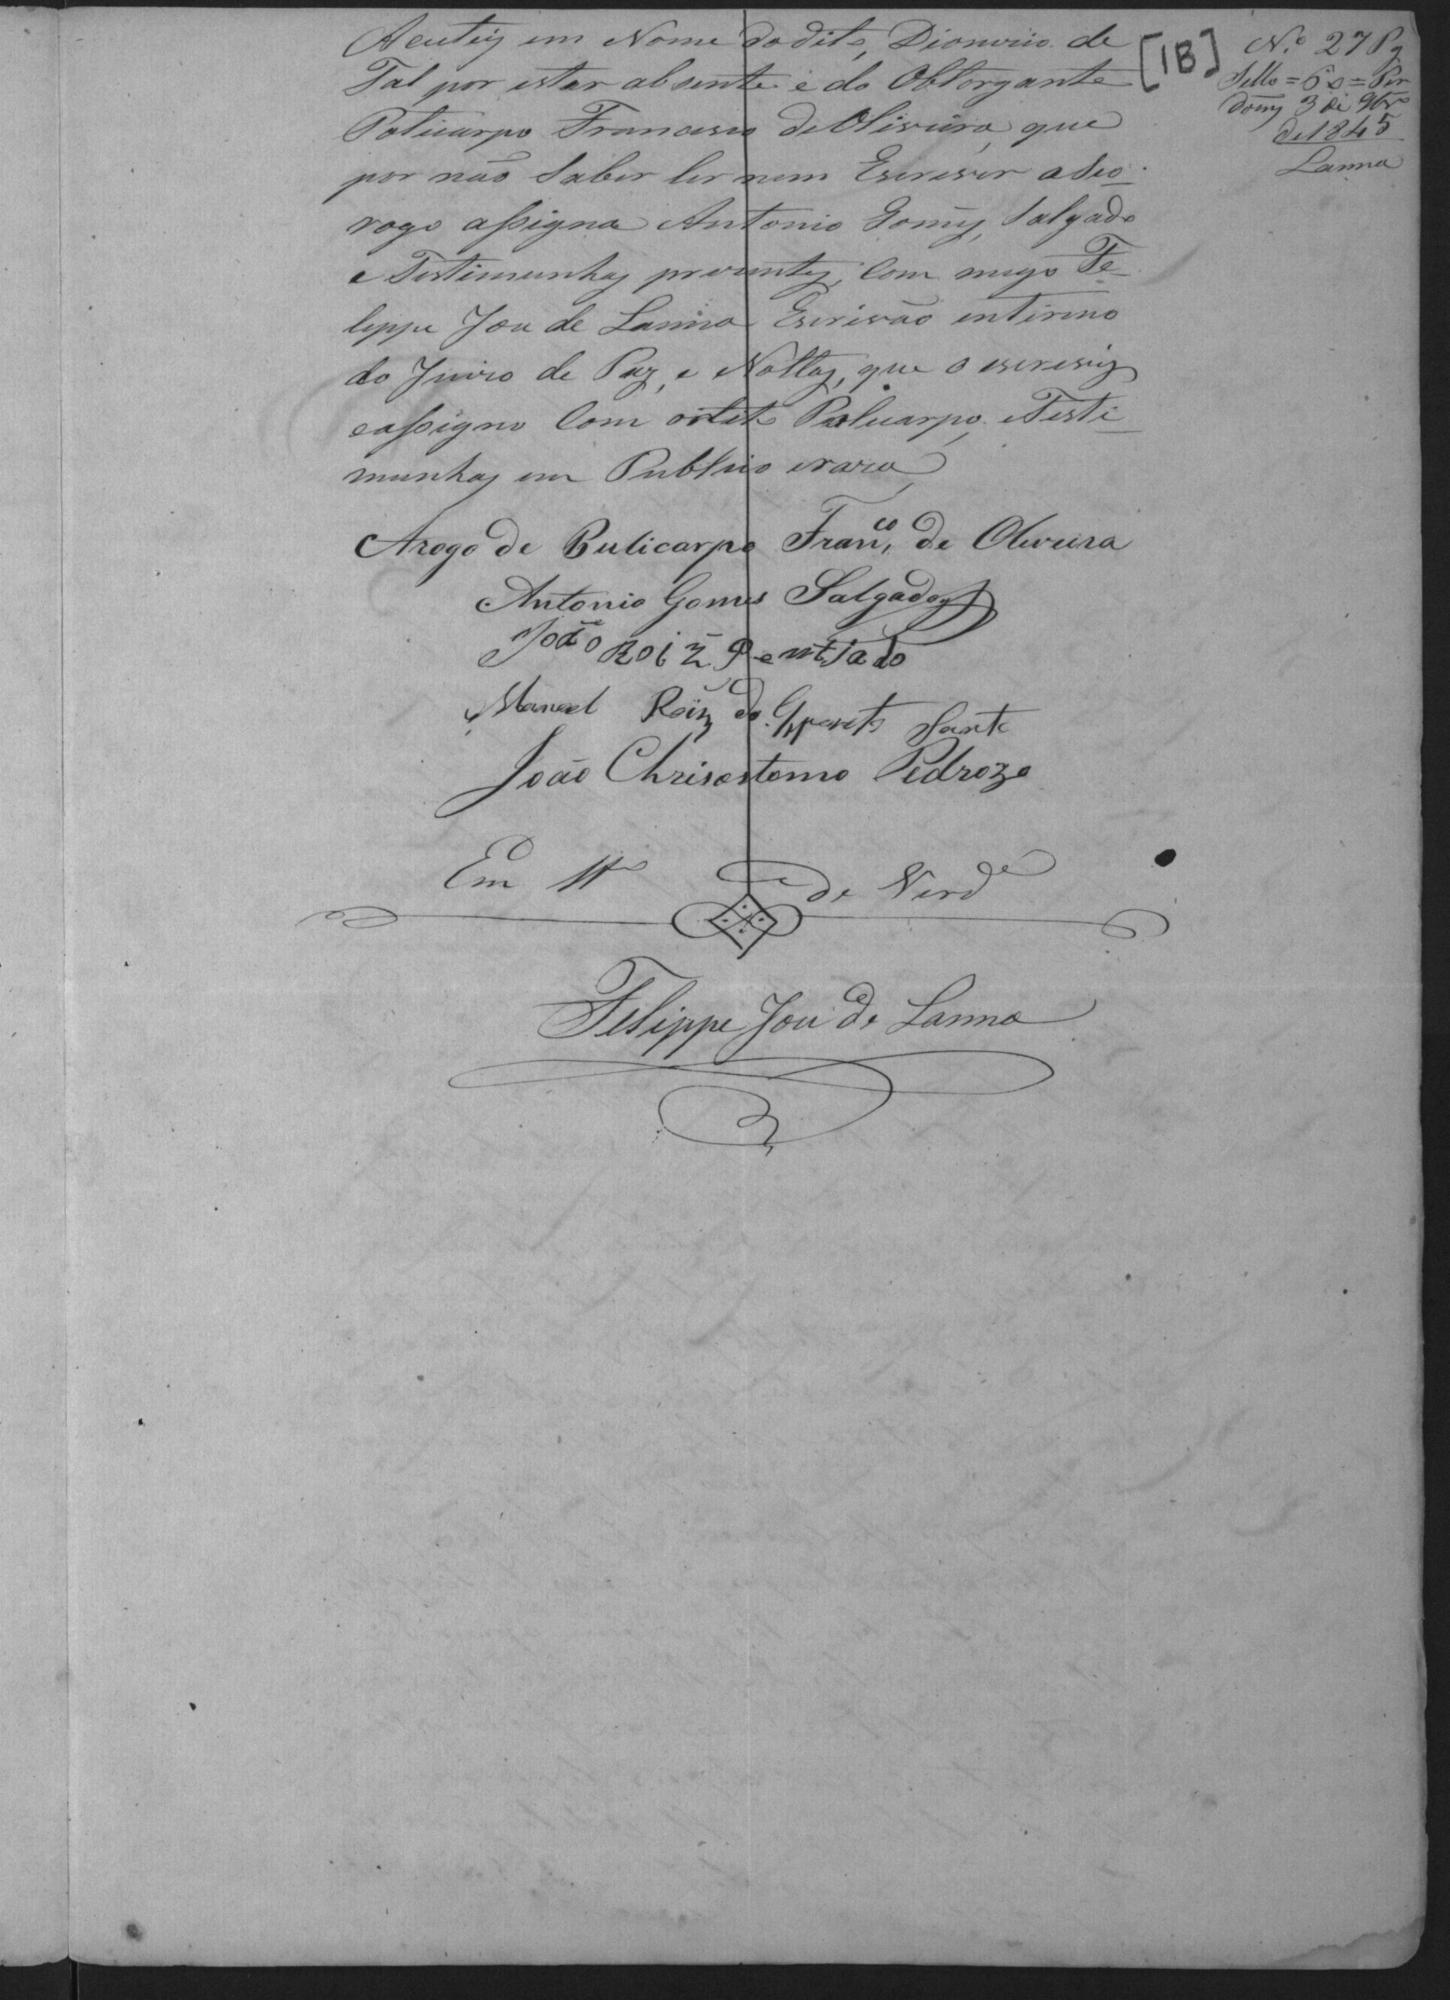 Aceitey em Nome do dito, Dionizio de
Tal por estar absente e do Obtorgante
Policarpo Francisco de Oliveira, que
por não Saber ler nem Escrever a Seo
rogo assigna Antonio Gomes Salgado
e Testimunhas prezentes, Com migo Fe
lippe Joze de Lanna Escrivão interino
do Juizo de Paz, e Nottas, que o escrevy
e assigno Com o dito Policarpo, e Testi
munhas em Publico e razo
Arogo de Pulicarpo Franco. de Oliveira
Antonio Gomes Salgado
João Roiz Pentiado
Manoel Roiz do Espirito Santo
João Chrisostomo Pedrozo
Em tto de Verde
Felippe Joze de Lanna
[1B]
N.o 27 Pg
Sello = 60 = Per
domg 3 de 9bro
de 1845
Lanna